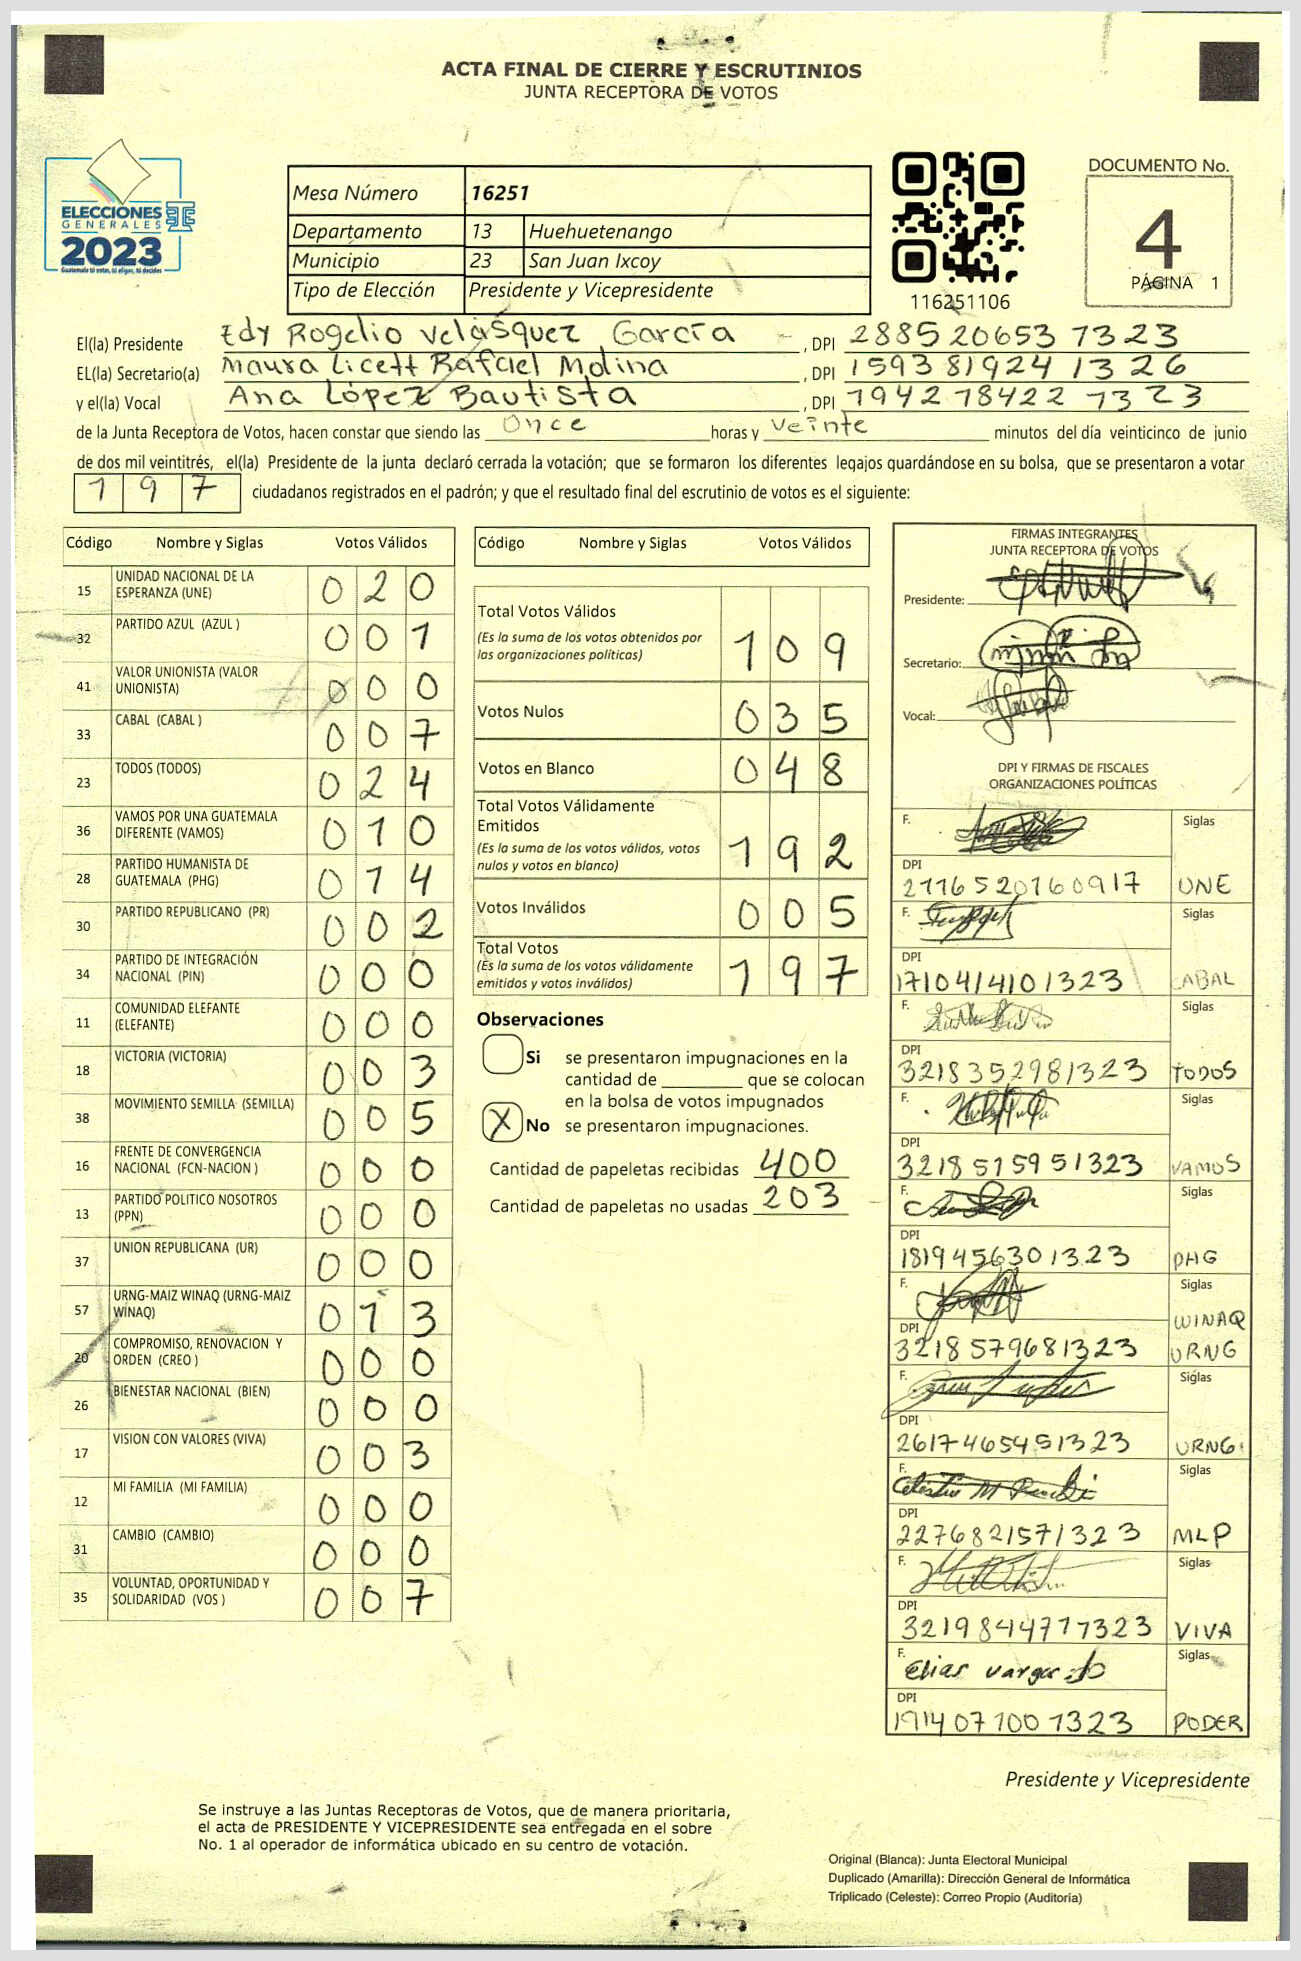 ACTA FINAL DE CIERRE Y ESCRUTINIOS
JUNTA RECEPTORA DE VOTOS
ELECCIONES
GENERALES
2023
Guatemala tú votas, tú eliges, tú decides
Mesa Número 16251
Departamento 13 Huehuetenango
Municipio 23 San Juan Ixcoy
Tipo de Elección Presidente y Vicepresidente
116251106
DOCUMENTO No.
4
PÁGINA 1
El(la) Presidente Edy Rogelio Velásquez García , DPI 288520653 1323
EL(la) Secretario(a) Maura Licett Rafael Molina , DPI 159381924 1326
y el(la) Vocal Ana López Bautista , DPI 194278422 1323
de la Junta Receptora de Votos, hacen constar que siendo las Once horas y veinte minutos del día veinticinco de junio
de dos mil veintitrés, el(la) Presidente de la junta declaró cerrada la votación; que se formaron los diferentes legajos guardándose en su bolsa, que se presentaron a votar
197 ciudadanos registrados en el padrón; y que el resultado final del escrutinio de votos es el siguiente:
Código Nombre y Siglas Votos Válidos
15 UNIDAD NACIONAL DE LA ESPERANZA (UNE) 020
32 PARTIDO AZUL (AZUL ) 001
41 VALOR UNIONISTA (VALOR UNIONISTA) 000
33 CABAL (CABAL ) 007
23 TODOS (TODOS) 024
36 VAMOS POR UNA GUATEMALA DIFERENTE (VAMOS) 010
28 PARTIDO HUMANISTA DE GUATEMALA (PHG) 014
30 PARTIDO REPUBLICANO (PR) 002
34 PARTIDO DE INTEGRACIÓN NACIONAL (PIN) 000
11 COMUNIDAD ELEFANTE (ELEFANTE) 000
18 VICTORIA (VICTORIA) 003
38 MOVIMIENTO SEMILLA (SEMILLA) 005
16 FRENTE DE CONVERGENCIA NACIONAL (FCN-NACION ) 000
13 PARTIDO POLITICO NOSOTROS (PPN) 000
37 UNION REPUBLICANA (UR) 000
57 URNG-MAIZ WINAQ (URNG-MAIZ WINAQ) 013
20 COMPROMISO, RENOVACION Y ORDEN (CREO ) 000
26 BIENESTAR NACIONAL (BIEN) 000
17 VISION CON VALORES (VIVA) 003
12 MI FAMILIA (MI FAMILIA) 000
31 CAMBIO (CAMBIO) 000
35 VOLUNTAD, OPORTUNIDAD Y SOLIDARIDAD (VOS ) 007
Código Nombre y Siglas Votos Válidos
Total Votos Válidos 109
(Es la suma de los votos obtenidos por
las organizaciones políticas)
Votos Nulos 035
Votos en Blanco 048
Total Votos Válidamente
Emitidos 192
(Es la suma de los votos válidos, votos
nulos y votos en blanco)
Votos Inválidos 005
Total Votos 197
(Es la suma de los votos válidamente
emitidos y votos inválidos)
Observaciones
Si se presentaron impugnaciones en la
cantidad de ________ que se colocan
en la bolsa de votos impugnados
X No se presentaron impugnaciones.
Cantidad de papeletas recibidas 400
Cantidad de papeletas no usadas 203
FIRMAS INTEGRANTES
JUNTA RECEPTORA DE VOTOS
Presidente:
Secretario:
Vocal:
DPI Y FIRMAS DE FISCALES
ORGANIZACIONES POLÍTICAS
F. Siglas
DPI
2776520160917 UNE
F. Siglas
DPI
1710414101323 CABAL
F. Siglas
DPI
3218352981323 TODOS
F. Siglas
DPI
3218515951323 VAMOS
F. Siglas
DPI
1819456301323 PHG
F. Siglas
WINAQ
DPI
3218579681323 URNG
F. Siglas
DPI
2617465451323 URNG
F. Siglas
DPI
2276821571323 MLP
F. Siglas
DPI
3219844771323 VIVA
F. Elias Vargas Siglas
DPI
1914071001323 PODER
Presidente y Vicepresidente
Se instruye a las Juntas Receptoras de Votos, que de manera prioritaria,
el acta de PRESIDENTE Y VICEPRESIDENTE sea entregada en el sobre
No. 1 al operador de informática ubicado en su centro de votación.
Original (Blanca): Junta Electoral Municipal
Duplicado (Amarilla): Dirección General de Informática
Triplicado (Celeste): Correo Propio (Auditoría)